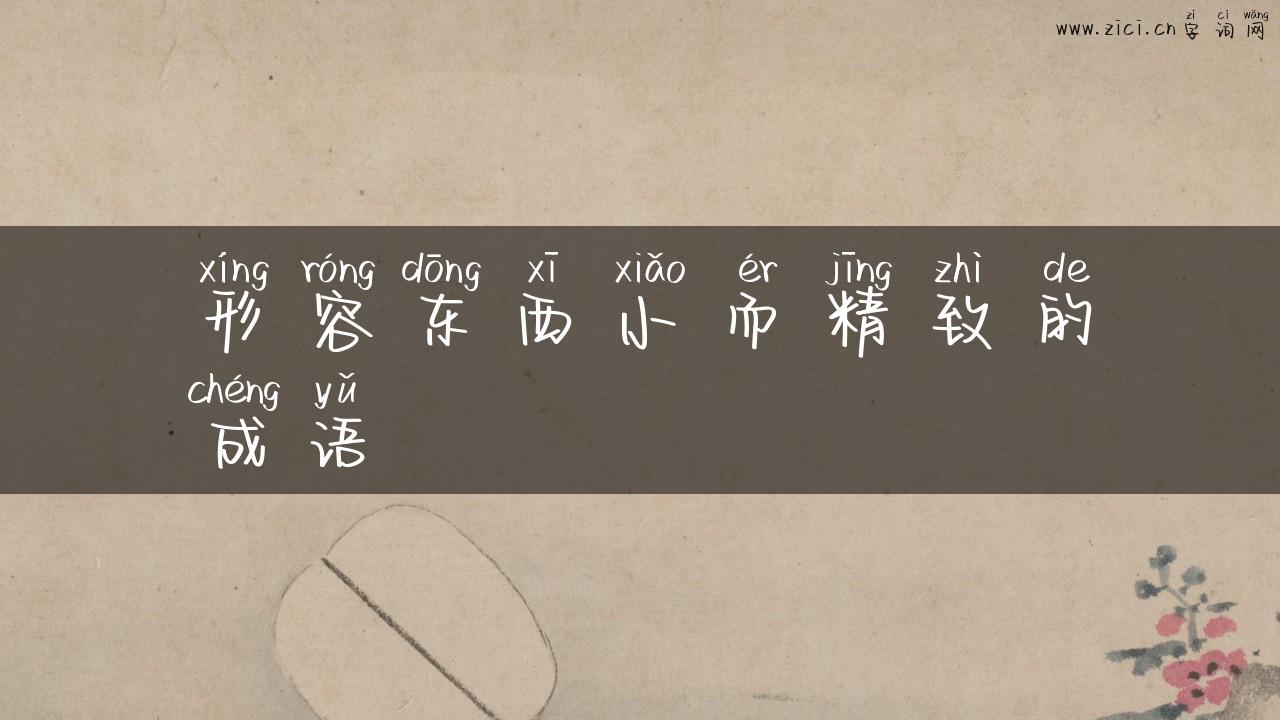 zì cí wǎng
www.zici.cn 字词网
xíng róng dōng xī xiǎo ér jīng zhì de
形容东西小而精致的
chéng yǔ
成语